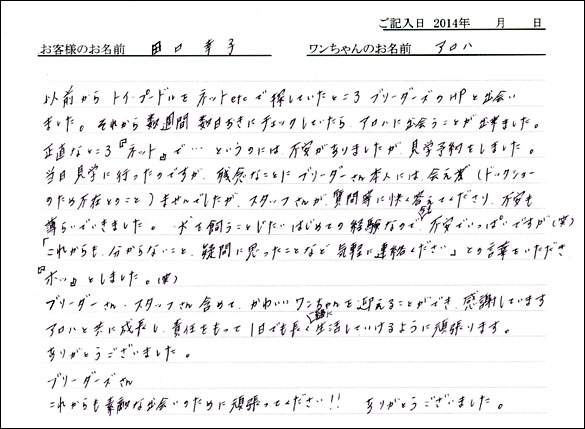 ご記入日 2014年 月 日
お客様のお名前 田口 幸子 ワンちゃんのお名前 アロハ
以前から トイ・プードルを ネットetcで探していたところ ブリーダーズのHPと出会い
ました。それから数週間 数日おきにチェックしていたら、アロハに出会うことが出来ました。
正直なところ『ネット』で…というのには、不安がありましたが、見学予約をしました。
当日見学に行ったのですが、残念なことに ブリーダーさん本人には、会え(ドックショー
のため不在とのこと)ませんでしたが、スタッフさんが、質問等に快く答えてくださり、不安も
薄らいでいきました。 犬を飼うことじたいはじめての経験なので、不安でいっぱいですが(笑)
「これからも、分からないこと、疑問に思ったことなど 気軽に連絡ください」との言葉をいただき
『ホッ』としました。(笑)
ブリーダーさん・スタッフさん含めて、かわいいワンちゃんを迎えることができ、感謝しています
アロハと共に成長し、責任をもって 1日でも長く 一緒に 生活していけるように頑張ります。
ありがとうございました。
ブリーダーズさん
これからも素敵な出会いのために頑張ってください!! ありがとうございました。